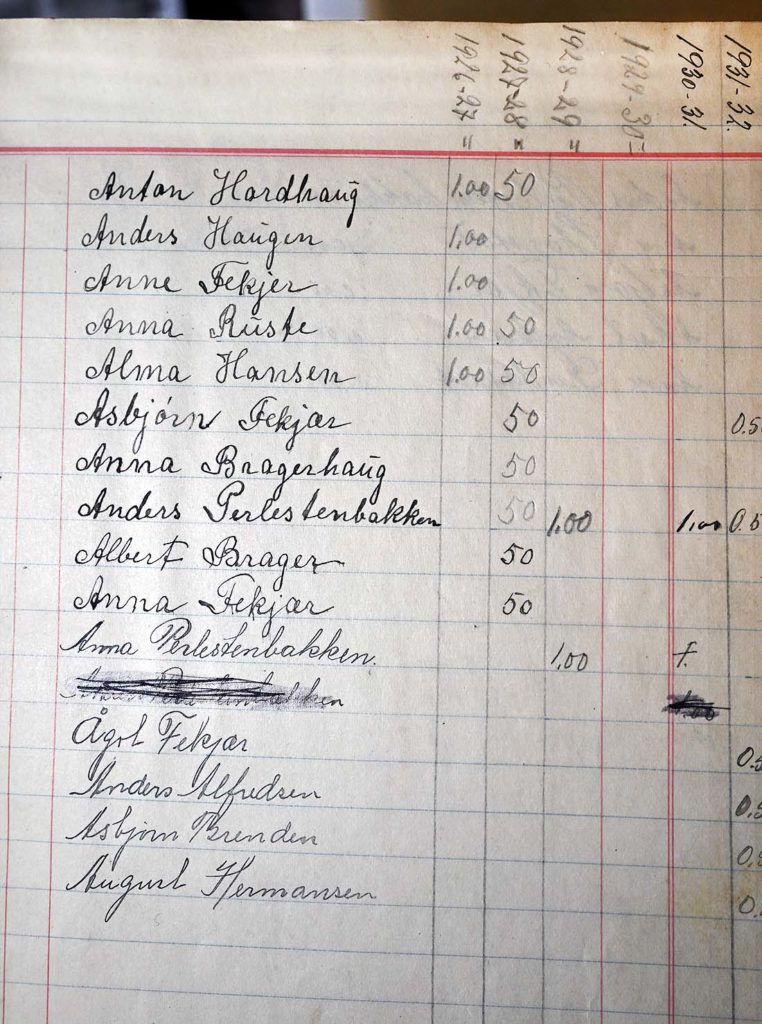 1926-27 = 1927-28 = 1928-29 = 1929-30 = 1930-31. 1931-32.
Anton Hardhaug 1.00 50
Anders Haugen 1,00
Anne Fekjer 1.00
Anna Ruste 1.00 50
Alma Hansen 1.00 50
Asbjörn Fekjær 50 0.5
Anna Bragerhaug 50
Anders Perlestenbakken 50 1.00 1.00 0.5
Albert Brager 50
Anna Fekjær 50
Anna Perlestenbakken. 1.00 f.
Ågot Fekjær 0.5
Anders Alfredsen 0.5
Asbjörn Brenden 0.
August Hermansen 0.